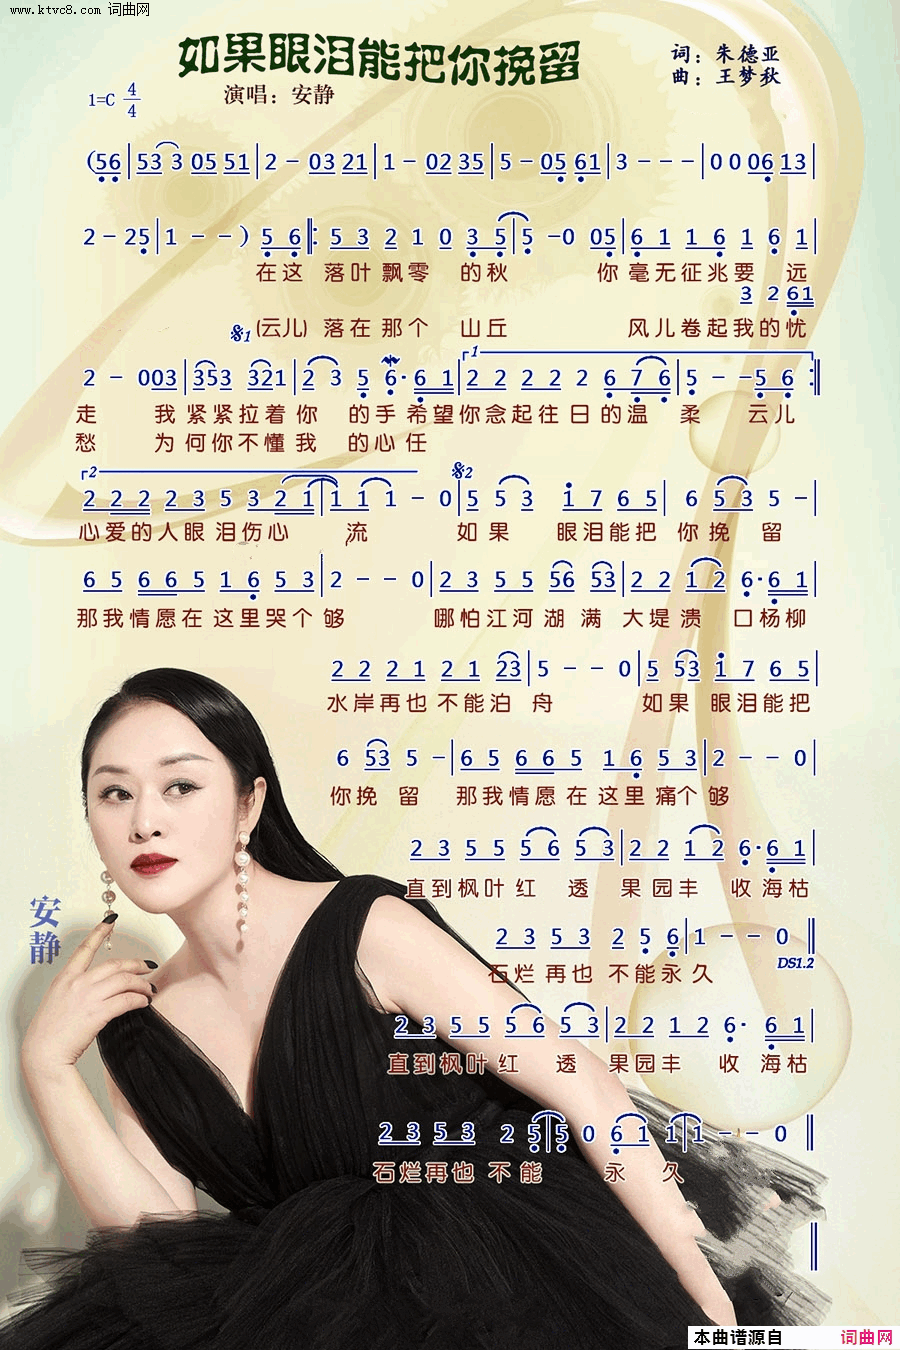 www.ktvc8.com 词曲网
如果眼泪能把你挽留
词：朱德亚
曲：王梦秋
演唱：安静
1=C 4/4
(56|53 3 05 51|2 - 03 21|1 - 02 35|5 - 05 61|3 - - -|0 0 06 13|
2 - 25|1 - - ) 5 6‖: 5 3 2 1 0 3 5|5 -0 05|6 1 1 6 1 6 1|
在这 落叶飘零 的秋 你毫无征兆要 远
3 2 61
𝄋1 (云儿) 落在那个 山丘 风儿卷起我的忧
2 - 003|353 321|2 3 5 6· 61|1 2 2 2 2 2 6 7 6|5 - - 5 6 :‖
走 我紧紧拉着你 的手希望你念起往日的温 柔 云儿
愁 为何你不懂我 的心任
2 2 2 2 2 3 5 3 2 1|1 1 1 - 0|𝄋2 5 5 3 1 7 6 5|6 5 3 5 -|
心爱的人眼泪伤心 流 如果 眼泪能把 你挽 留
6 5 6 6 5 1 6 5 3|2 - - 0|2 3 5 5 56 53|2 2 1 2 6· 6 1|
那我情愿在这里哭个够 哪怕江河湖 满 大堤溃 口杨柳
2 2 2 1 2 1 23|5 - - 0|5 53 1 7 6 5|
水岸再也不能泊 舟 如果 眼泪能把
6 53 5 -|6 5 6 6 5 1 6 5 3|2 - - 0|
你挽 留 那我情愿在这里痛个够
2 3 5 5 5 6 5 3|2 2 1 2 6· 6 1|
直到枫叶红 透 果园丰 收海枯
2 3 5 3 2 5 6|1 - - 0‖
石烂再也 不能永久
DS1.2
2 3 5 5 5 6 5 3|2 2 1 2 6· 6 1|
直到枫叶红 透 果园丰 收海枯
2 3 5 3 2 5|5 0 6 1 1|1 - - 0‖
石烂再也 不 能 永 久
安静
本曲谱源自 词曲网